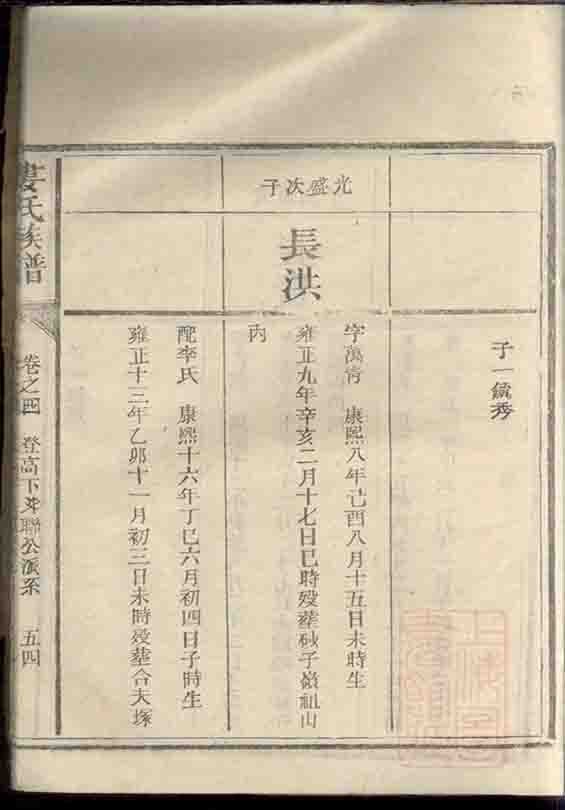 子一毓秀
光盛次子
長洪
字萬肯 康熙八年己酉八月十五日未時生
雍正九年辛亥二月十七日巳時歿葬砂子嶺祖山
內
配李氏 康熙十六年丁巳六月初四日子時生
雍正十三年乙卯十一月初三日未時歿葬合夫塚
姜氏族譜
卷之四 登高下 聯公派系 五四